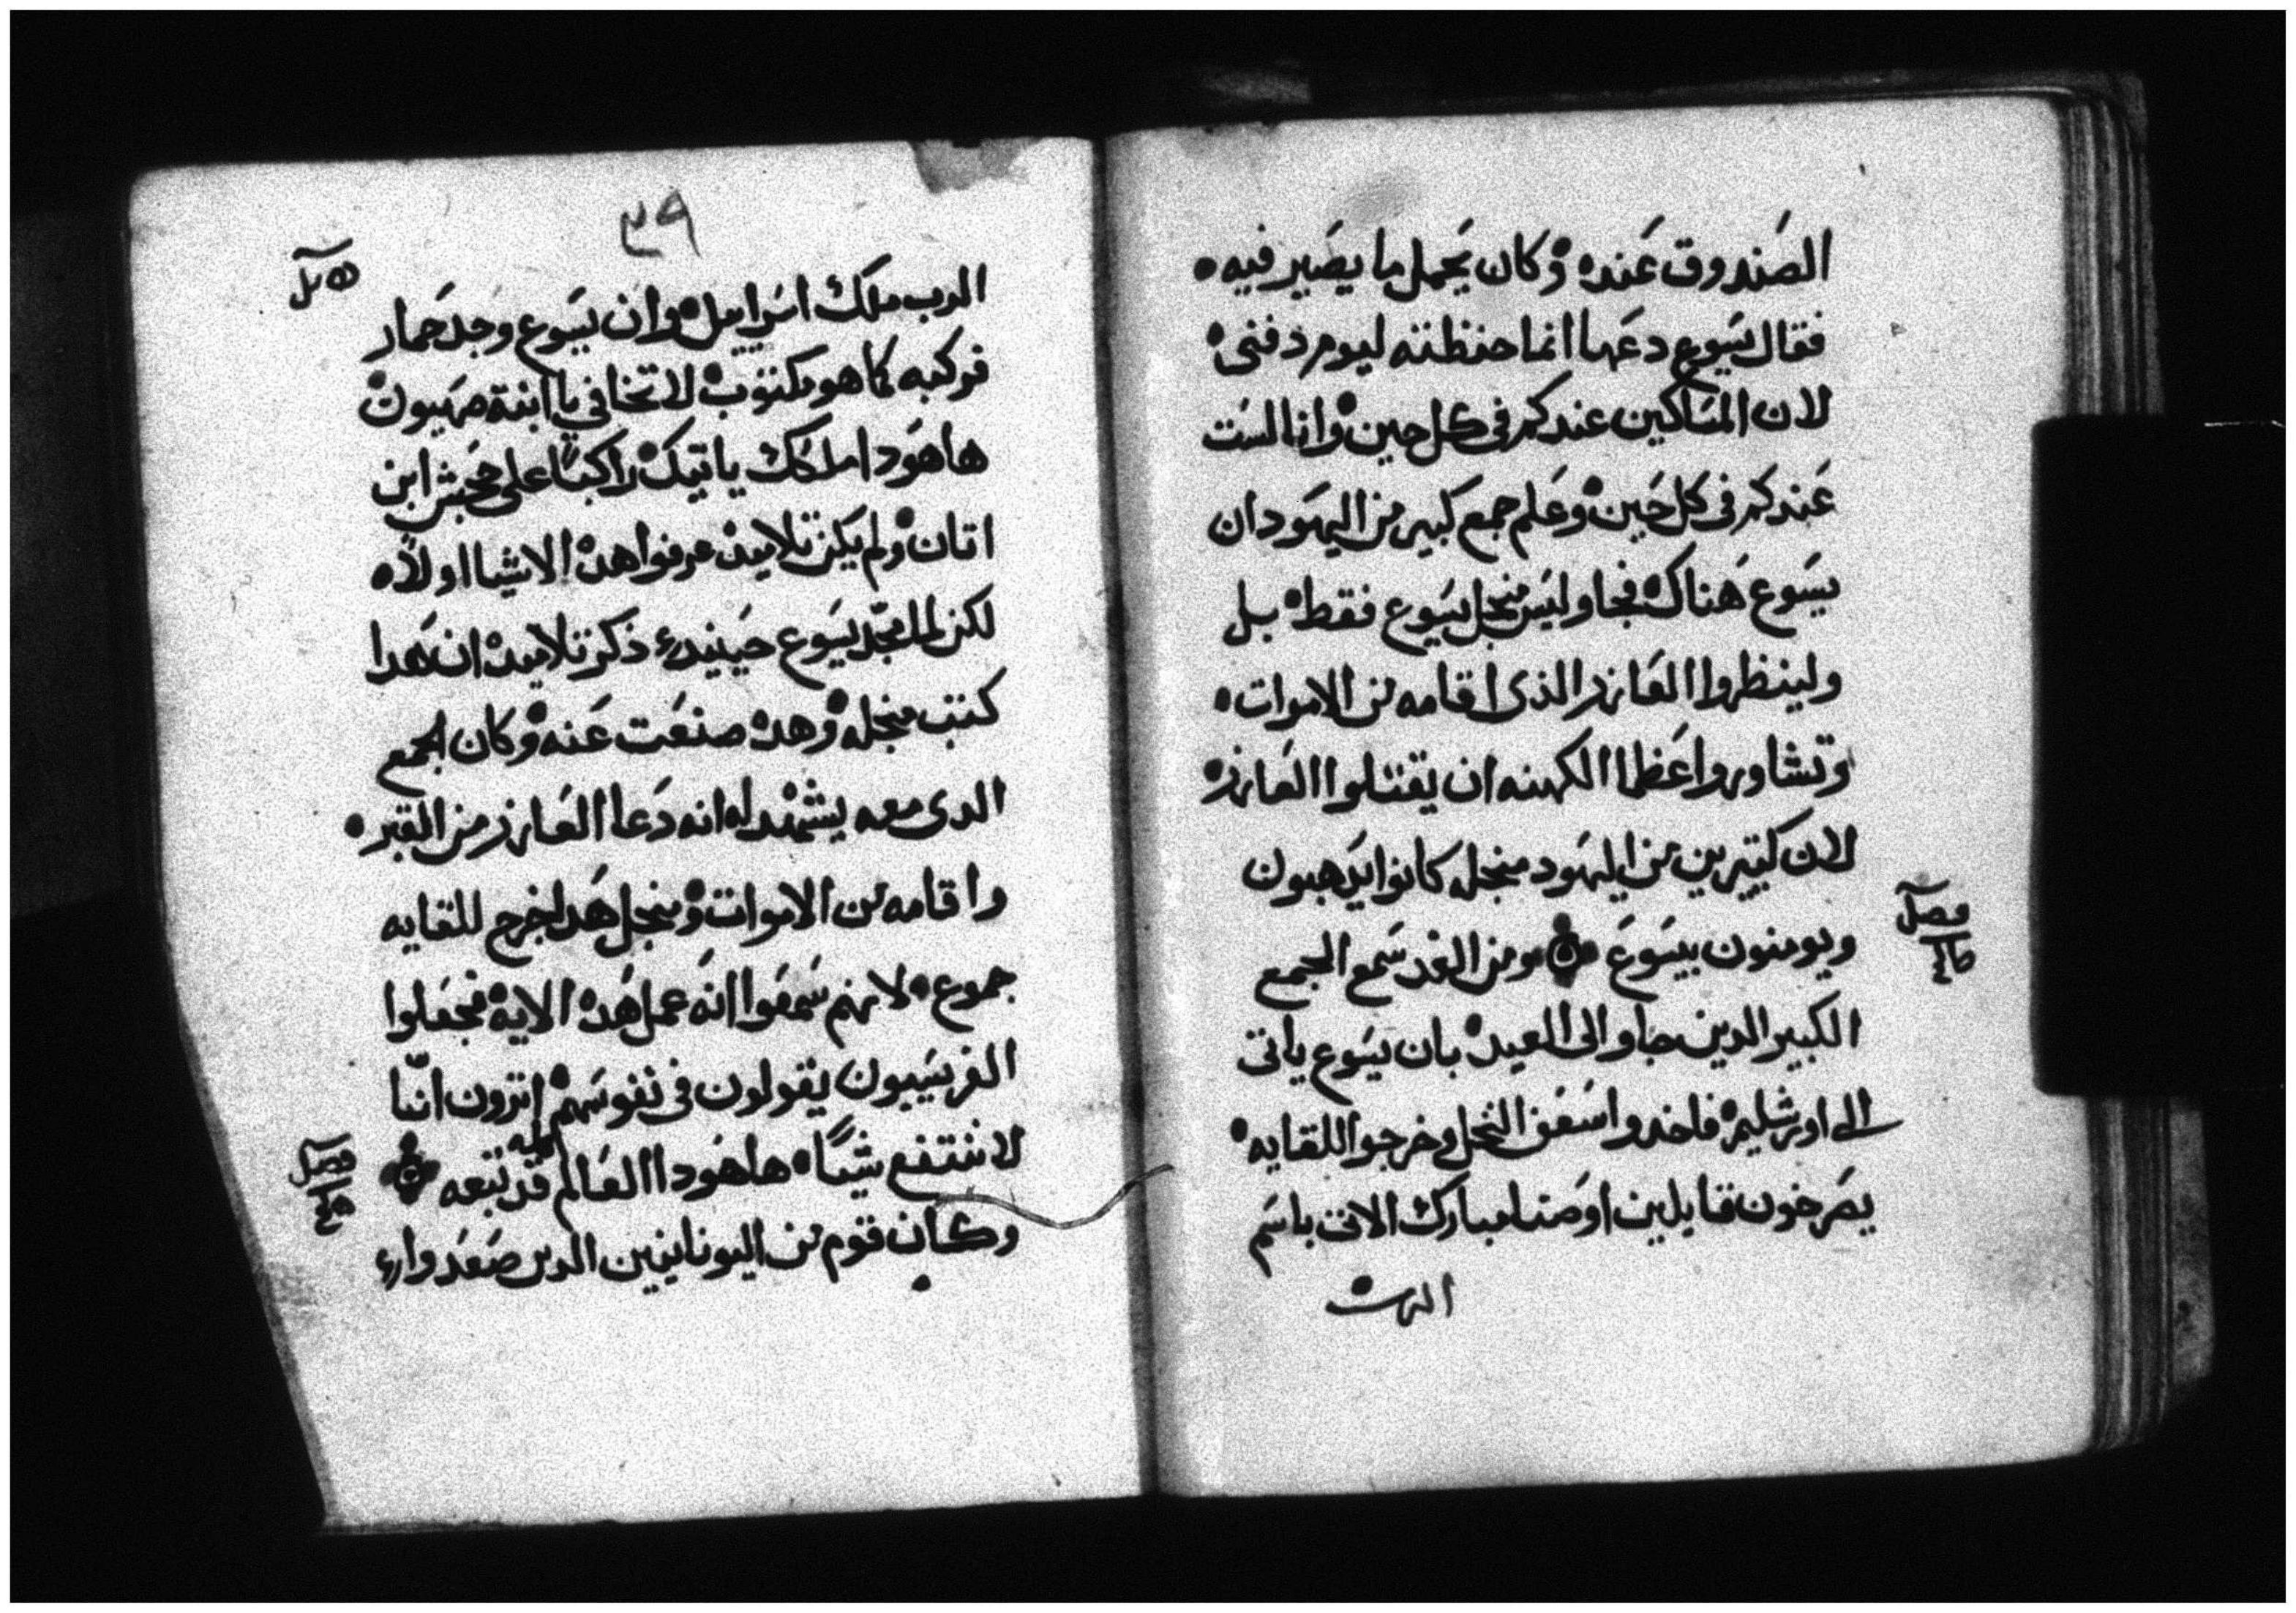 الصندوق عنده وكان يحمل ما يصير فيه
فقال يسوع دعها انما حفظته ليوم دفنى
لان المساكين عندكم فى كل حين وانا لست
عندكم فى كل حين وعلم جمع كبير من اليهود ان
يسوع هناك فجاو ليس منجل يسوع فقط بل
ولينظروا العازر الذى اقامه من الاموات
وتشاوروا عظما الكهنه ان يقتلوا العازر
لان كتيرين من ايليهود منجله كانوا يدهبون
ويومنون بيسوع ومن الغد سمع الجمع
فصل
الكبير الدين جاو الى العيد بان يسوع ياتى
الى اورشليم فاخدوا سعف النخل وخرجوا للقايه
يصرخون قايلين اوصنا مبارك الاتى باسم
الرب
٣٩
الرب ملك اسراييل وان يسوع وجد حمار
فركبه كما هو مكتوب لا تخافي يا ابنة صهيون
ها هودا ملكك ياتيك راكبا على جحش ابن
اتان ولم يكن تلاميده عرفوا هده الاشيا اولا
لكن لما مجد يسوع حينيد ذكر تلاميده ان هدا
كتب منجله وهده صنعت عنه وكان الجمع
الدى معه يشهد له انه دعا العازر من القبر
واقامه من الاموات ومنجل هدا خرج للقايه
جموع لانهم سمعوا انه عمل هده الايه فجعلوا
الفريسيون يقولون فى نفوسهم اترون انا
لا ننتفع شيا ها هودا العالم كله قد تبعه
فصل
وكان قوم من اليونانيين الدين صعدوا